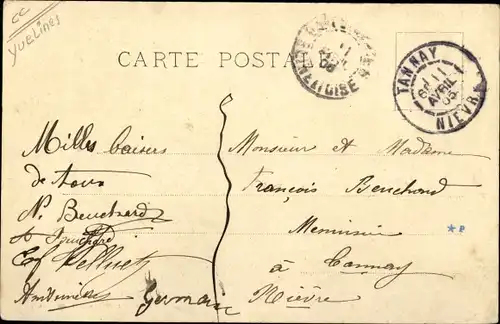 CC
YUELINES
CARTE POSTALE
11
TANNAY
6P 11
AVRIL
05
NIEVRE
Milles baisers
de tous
N. Bouchard
Germain
Monsieur et Madame
François Bouchard
Menuisier
à Tannay
Nièvre